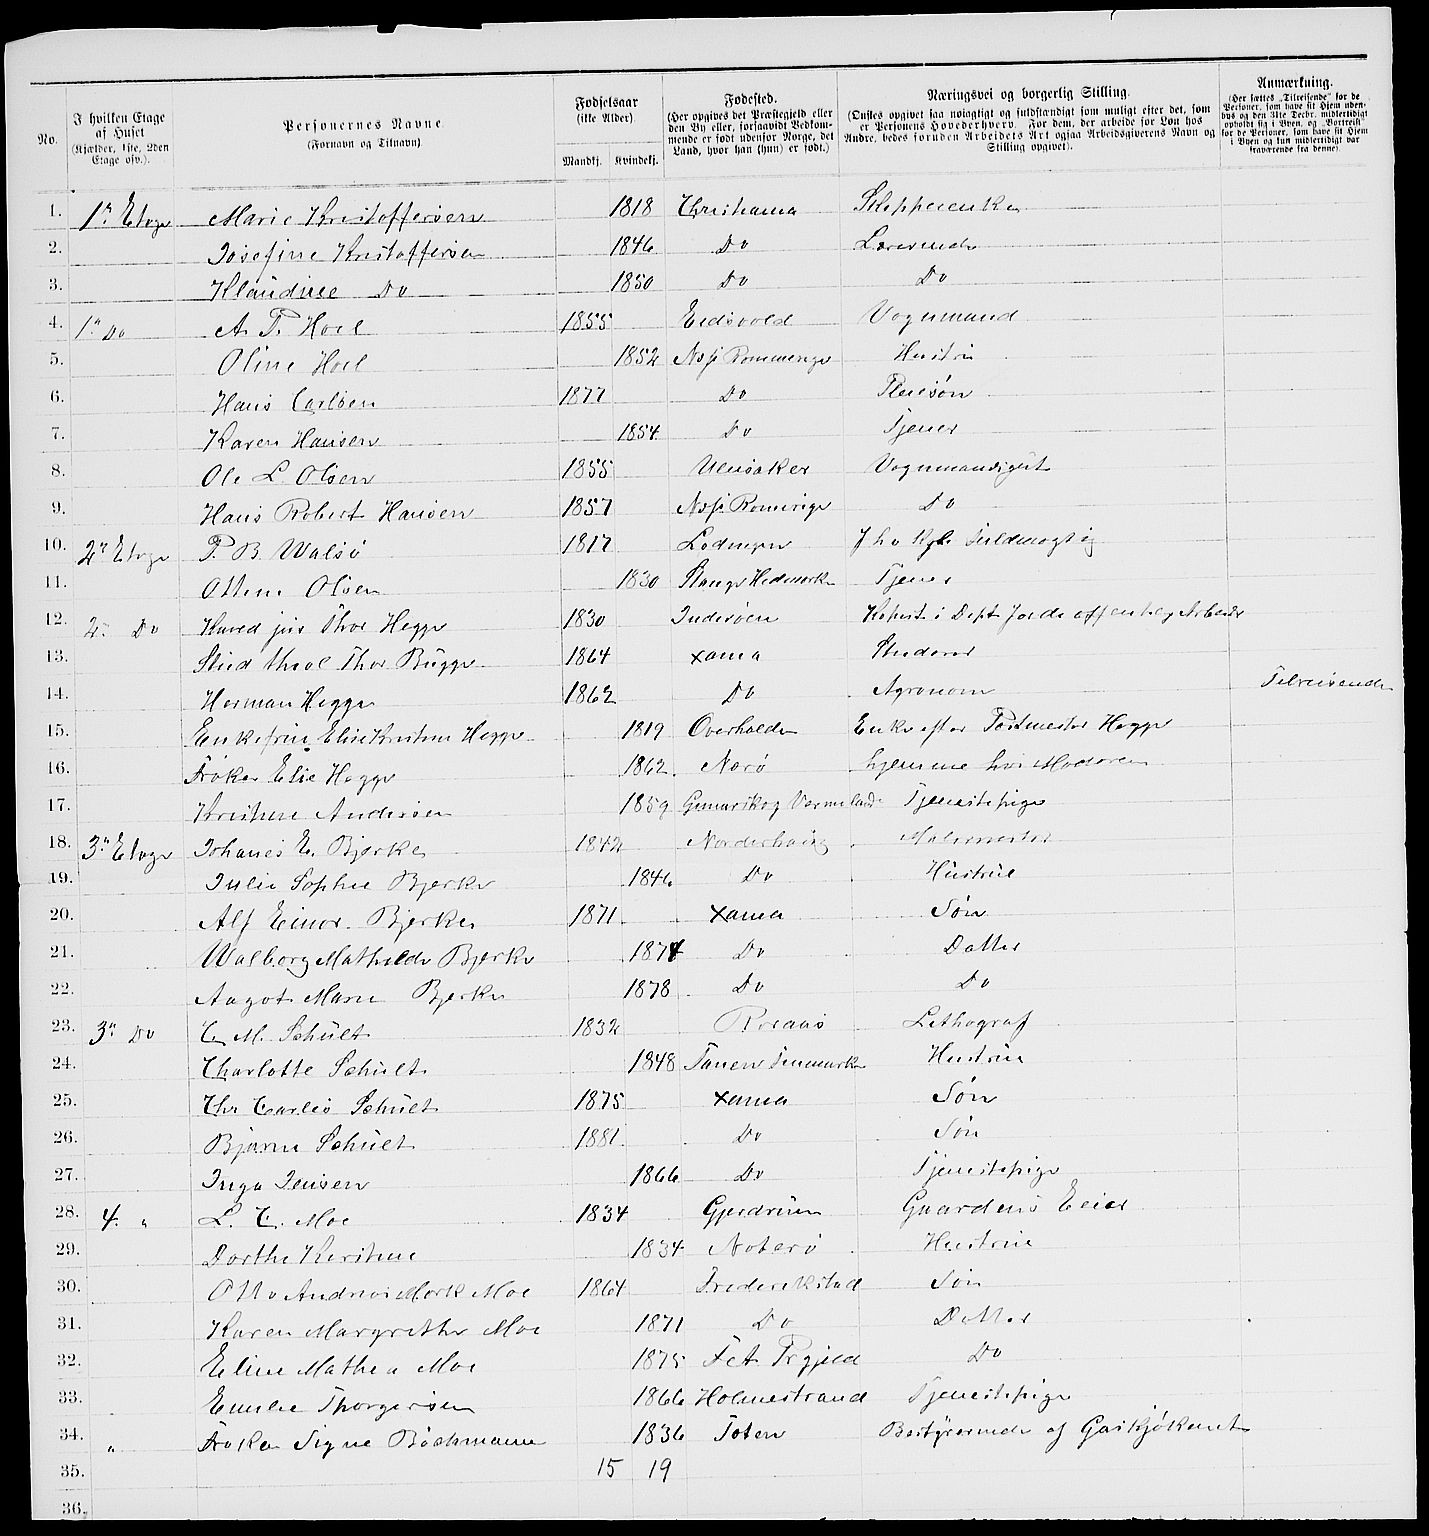 No.
I hvilken Etage af Huset (Kjælder, 1ste, 2den Etage osv.).
Personernes Navne (Fornavn og Tilnavn)
Fødselsaar (ikke Alder)
Mandkj. Kvindekj.
Fødested. (Her opgives det Præstegjeld eller den By eller, forsaavidt Vedkommende er født udenfor Norge, det Land, hvor han (hun) er født.)
Næringsvei og borgerlig Stilling. (Ønskes opgivet saa nøiagtigt og fuldstændigt som muligt efter det, som er Personens Hovederhverv. For dem, der arbeide for Løn hos Andre, bedes foruden Arbeidets Art ogsaa Arbeidsgiverens Navn og Stilling opgivet).
Anmærkning. (Her sættes „Tilreisende" for de Personer, som have sit Hjem udenbys og den 31te Decbr. midlertidigt opholdt sig i Byen, og „Bortreist" for de Personer, som have sit Hjem i Byen og kun midlertidigt var fraværende fra denne).
1. 1ste Etage Marie Kristoffersen 1818 Christiania Skipperenke
2. Josefine Kristoffersen 1846 Do Lærerinde
3. Klaudine Do 1850 Do Do
4. 1" Do A. P. Hoel 1855 Eidsvold Vognmand
5. Oline Hoel 1852 Næs Romerige Hustru
6. Hans Carlsen 1877 Do Pleiesøn
7. Karen Hansen 1854 Do Tjener
8. Ole L. Olsen 1855 Ullensaker Vognmandsgut
9. Hans Robert Hansen 1857 Næs Romerige Do
10. 2n Etage P. B. Walsø 1817 Lødingen Fuldmægtig
11. Ottine Olsen 1830 Stange Hedmarken Tjener
12. 2. Do Thor Hegge 1830 Inderøen Kopist i Dept for de offentlige Arbeider
13. Stud Thor Bugge 1864 Xania Studerer
14. Herman Hegge 1862 Do Agronom Tilreisende
15. Enkefrue Elise Kristine Hegge 1819 Overhalden Enke efter Postmester Hegge
16. Frøken Elie Hegge 1862 Nærø hjemme hos Moderen
17. Kristine Andersen 1859 Gunarskog Vermeland Tjenestepige
18. 3n Etage Johanes E. Bjerke 1842 Norderhaug Malermester
19. Julie Sophie Bjerke 1846 Do Hustrue
20. Alf Einar Bjerke 1871 Xania Søn
21. Walborg Mathilde Bjerke 1874 Do Datter
22. Aagot Marie Bjerke 1878 Do Do
23. 3n Do C. M. Schult 1832 Røraas Lithograf
24. Charlotte Schult 1848 Tanen Finmarken Hustrue
25. Chr Carlis Schult 1875 Xania Søn
26. Bjarne Schult 1881 Do Søn
27. Inga Jensen 1866 Do Tjenestepige
28. 4. " L. C. Moe 1834 Gjerdrum Gaardens Eier
29. Dorthe Kirstine 1834 Noterø Hustrue
30. Otto Andreas Mørk Moe 1864 Frederikstad Søn
31. Karen Margrethe Moe 1871 Do Datter
32. Eline Mathea Moe 1875 Fet Prgjeld Do
33. Emilie Thorgersen 1866 Holmestrand Tjenestepige
34. " Frøken Signe Bachmann 1836 Toten Bestyrerinde af Gaskjøkenet
35. 15 19
36.